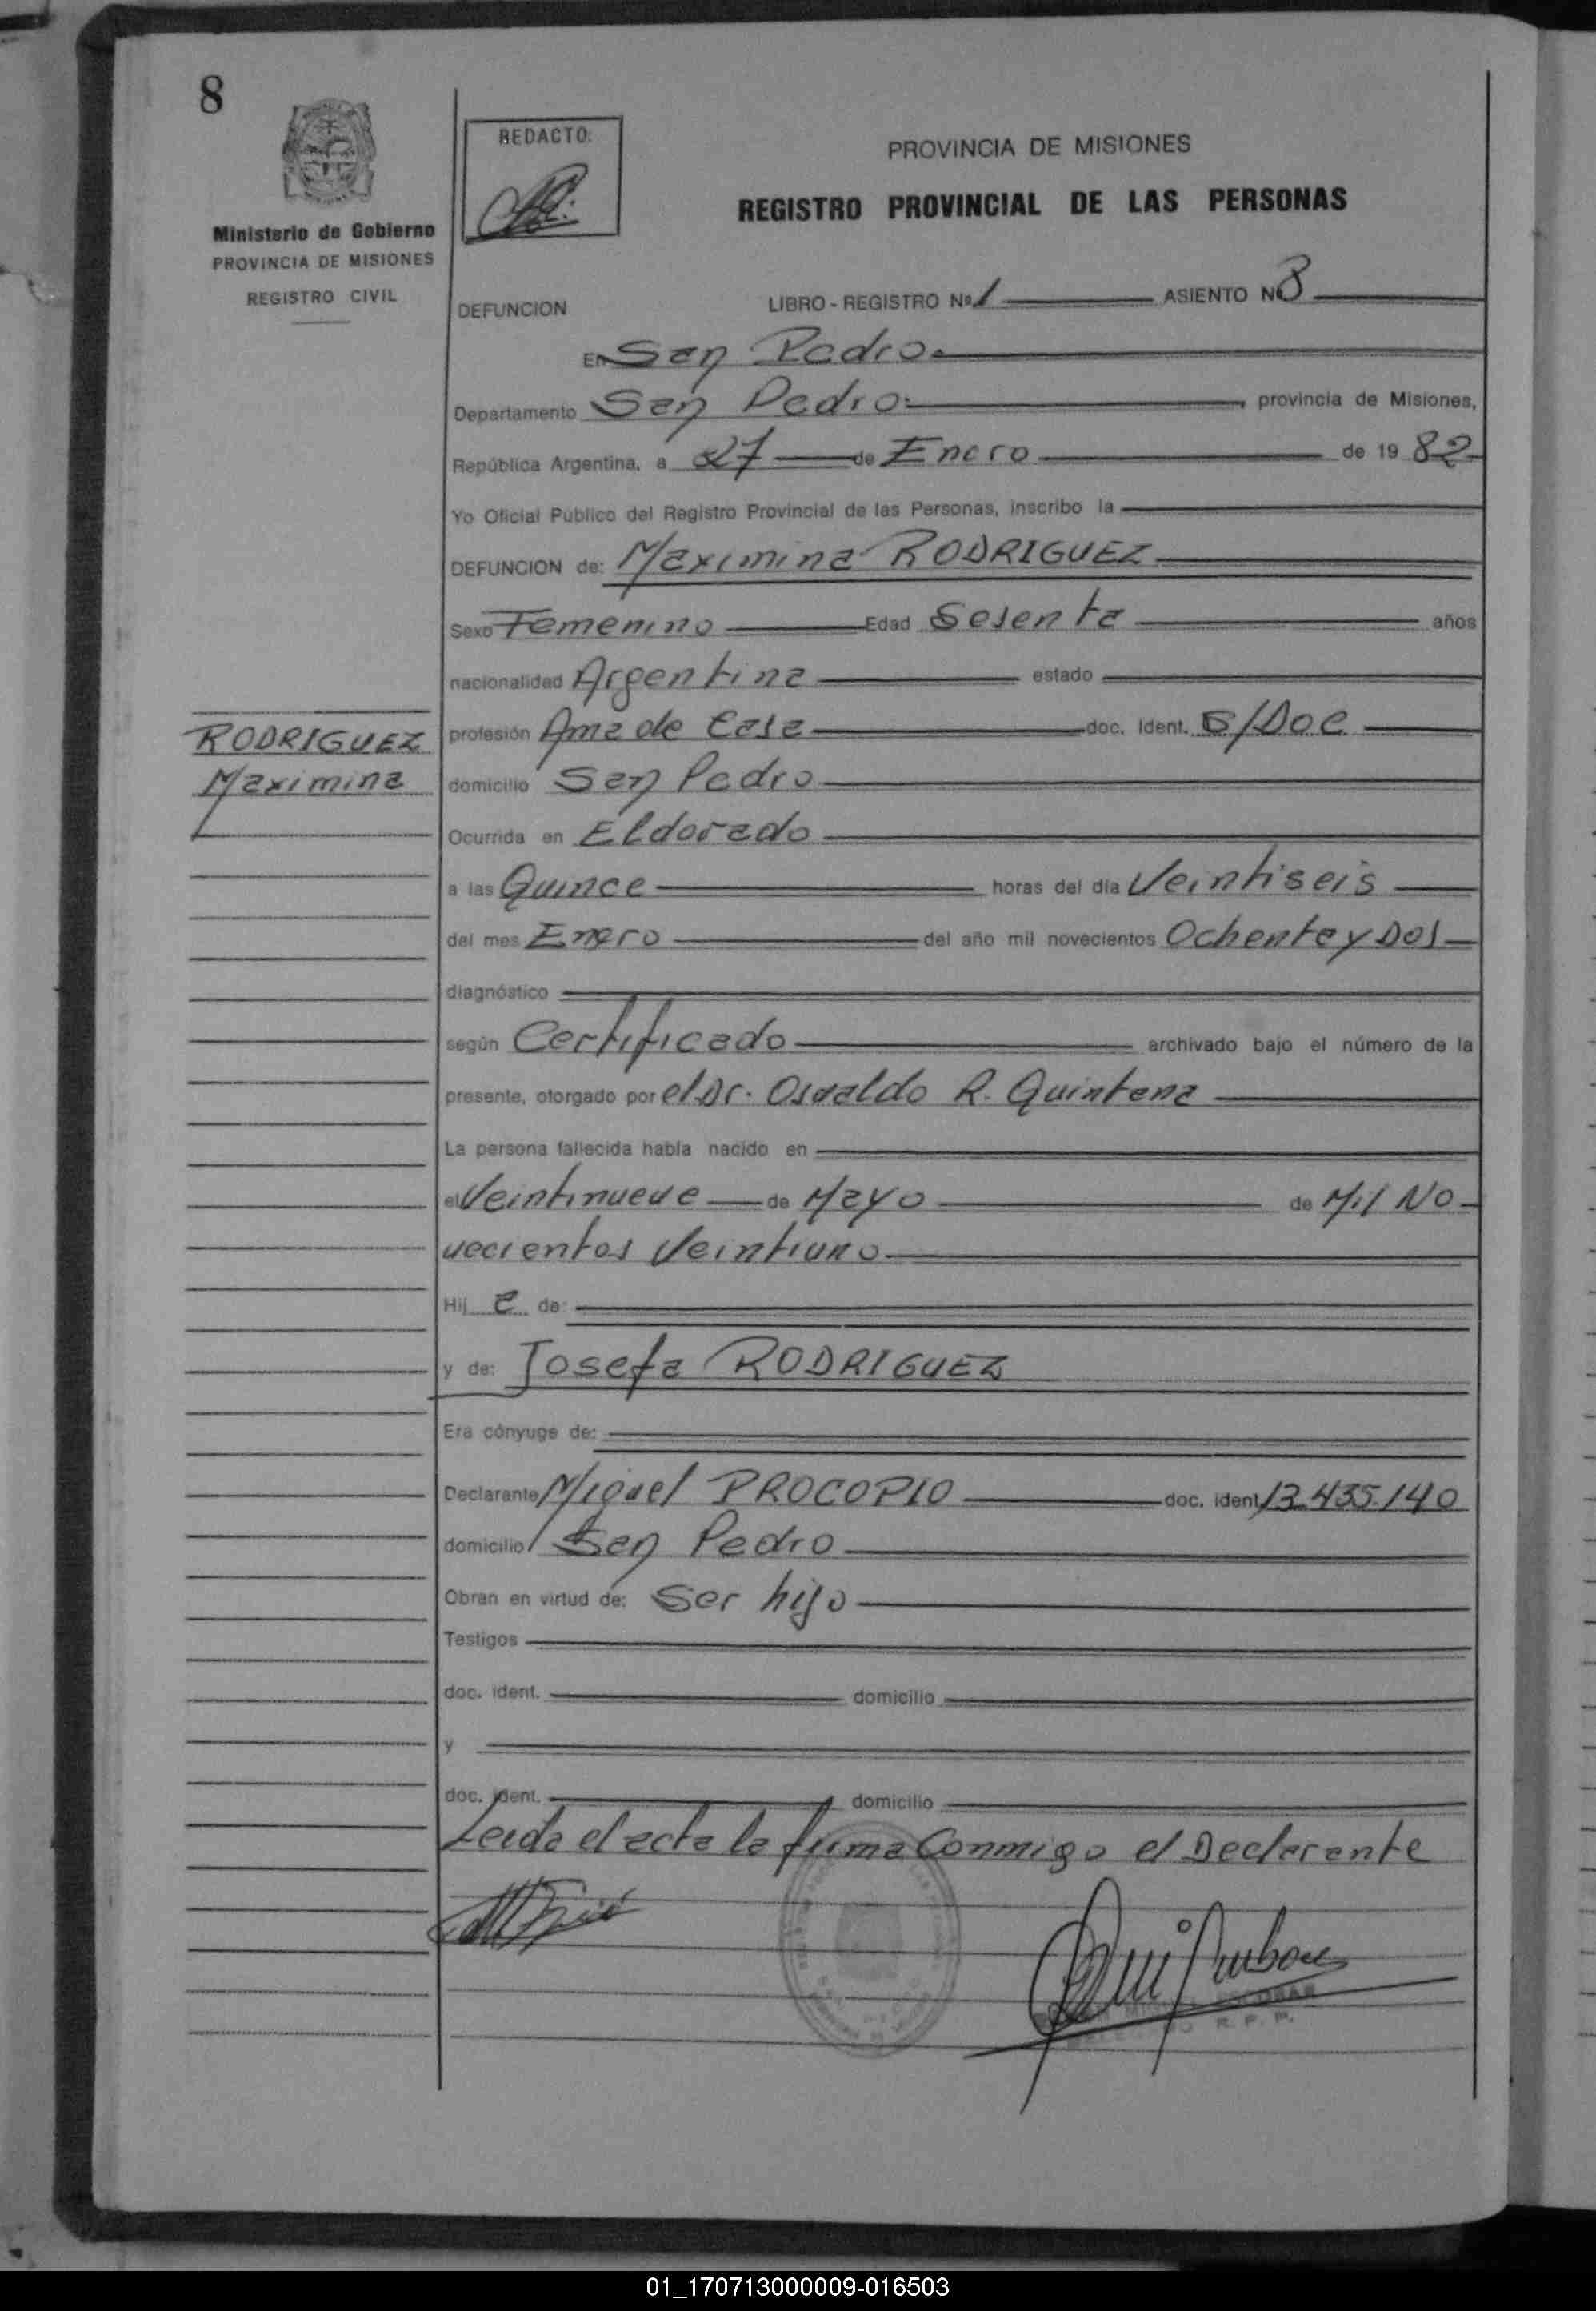 8
REDACTO:
PROVINCIA DE MISIONES
REGISTRO PROVINCIAL DE LAS PERSONAS
Ministerio de Gobierno
PROVINCIA DE MISIONES
REGISTRO CIVIL
DEFUNCION LIBRO - REGISTRO Nº 1 ASIENTO Nº 8
En San Pedro.
Departamento San Pedro. , provincia de Misiones,
República Argentina, a 27 de Enero de 19 82
Yo Oficial Publico del Registro Provincial de las Personas, inscribo la
DEFUNCION de: Maximina RODRIGUEZ
Sexo Femenino Edad Sesenta años
nacionalidad Argentina estado
RODRIGUEZ
Maximina
profesión Ama de Casa doc. ident. S/Doc
domicilio San Pedro
Ocurrida en Eldorado
a las Quince horas del día Veintiseis
del mes Enero del año mil novecientos Ochenta y Dos
diagnóstico
según Certificado archivado bajo el número de la
presente, otorgado por el Dr. Osvaldo R. Quintana
La persona fallecida había nacido en
el Veintinueve de Mayo de Mil No
vecientos Veintiuno
Hij a de:
y de: Josefa RODRIGUEZ
Era cónyuge de:
Declarante Miguel PROCOPIO doc. ident 13.435.140
domicilio San Pedro
Obran en virtud de: Ser hijo
Testigos
doc. ident. domicilio
y
doc. ident. domicilio
Leida el acta la firma Conmigo el Declarante
ESCOBAR
R. P. P.
01_170713000009-016503